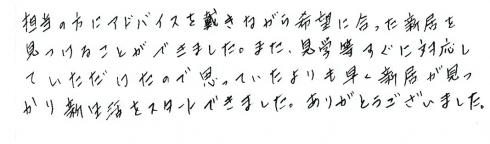 担当の方にアドバイスを戴きながら希望に合った新居を
見つけることができました。また、見学等すぐに対応し
ていただけたので思っていたよりも早く新居が見つ
かり新生活をスタートできました。ありがとうございました。